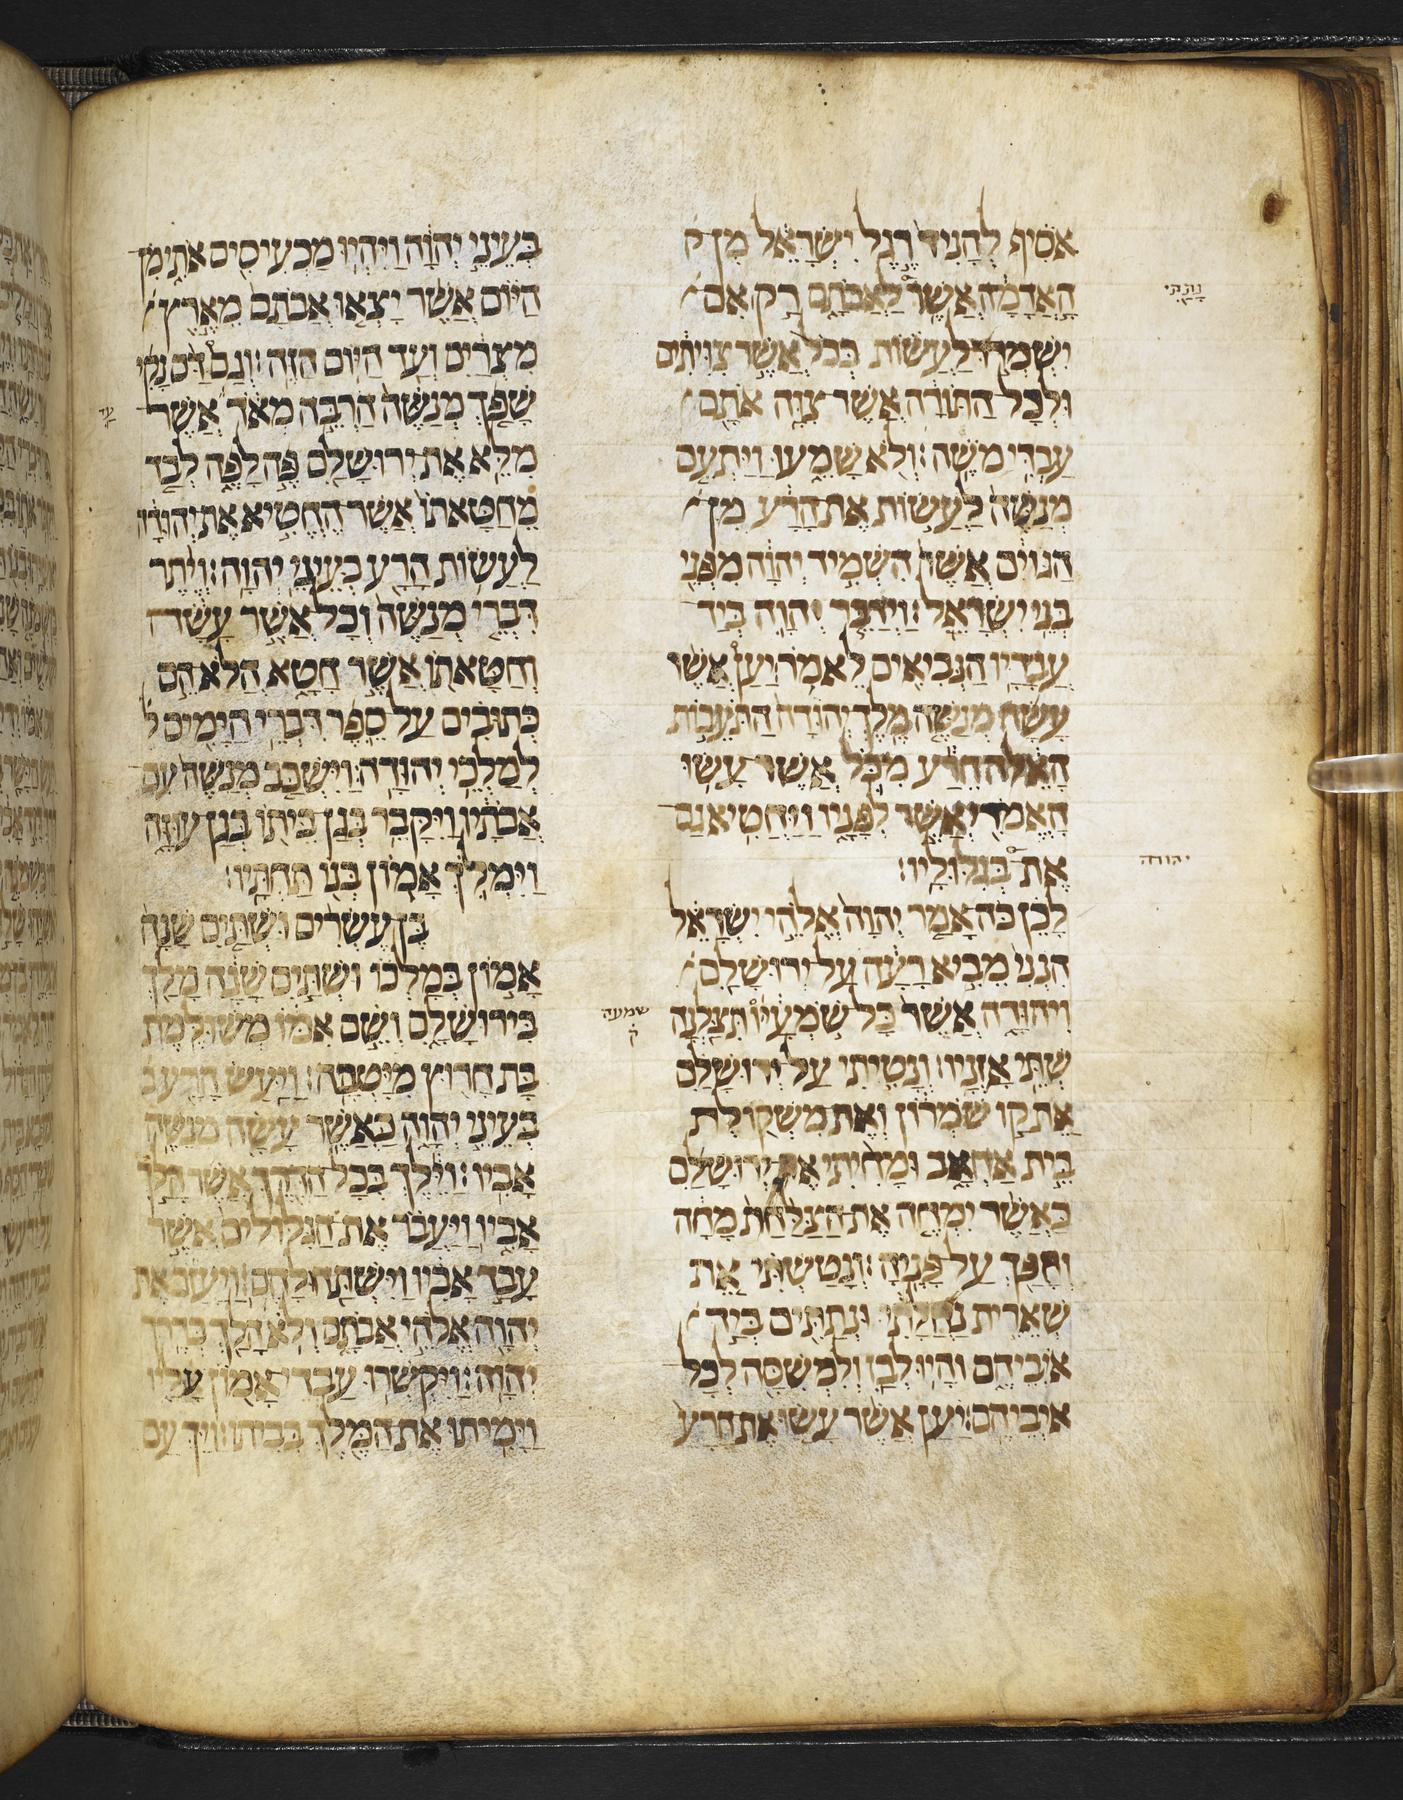 אֹסִיף לְהָנִיד רֶגֶל יִשְׂרָאֵל מִן
הָאֲדָמָה אֲשֶׁר לַאֲבֹתָם רַק אִם
יִשְׁמְרוּ לַעֲשׂוֹת כְּכֹל אֲשֶׁר צִוִּיתִים
וּלְכָל הַתּוֹרָה אֲשֶׁר צִוָּה אֹתָם
עַבְדִּי מֹשֶׁה׃ וְלֹא שָׁמֵעוּ וַיַּתְעֵם
מְנַשֶּׁה לַעֲשׂוֹת אֶת הָרָע מִן
הַגּוֹיִם אֲשֶׁר הִשְׁמִיד יְהוָה מִפְּנֵי
בְּנֵי יִשְׂרָאֵל׃ וַיְדַבֵּר יְהוָה בְּיַד
עֲבָדָיו הַנְּבִיאִים לֵאמֹר׃ יַעַן אֲשֶׁר
עָשָׂה מְנַשֶּׁה מֶלֶךְ יְהוּדָה הַתֹּעֵבוֹת
הָאֵלֶּה הֵרַע מִכֹּל אֲשֶׁר עָשׂוּ
הָאֱמֹרִי אֲשֶׁר לְפָנָיו וַיַּחֲטִא גַם
אֶת בְּגִלּוּלָיו׃
לָכֵן כֹּה אָמַר יְהוָה אֱלֹהֵי יִשְׂרָאֵל
הִנְנִי מֵבִיא רָעָה עַל יְרוּשָׁלִַם
וִיהוּדָה אֲשֶׁר כָּל שֹׁמְעָיו תִּצַּלְנָה
שְׁתֵּי אָזְנָיו׃ וְנָטִיתִי עַל יְרוּשָׁלִַם
אֵת קָו שֹׁמְרוֹן וְאֶת מִשְׁקֹלֶת
בֵּית אַחְאָב וּמָחִיתִי אֶת יְרוּשָׁלִַם
כַּאֲשֶׁר יִמְחֶה אֶת הַצַּלַּחַת מָחָה
וְהָפַךְ עַל פָּנֶיהָ׃ וְנָטַשְׁתִּי אֵת
שְׁאֵרִית נַחֲלָתִי וּנְתַתִּים בְּיַד
אֹיְבֵיהֶם וְהָיוּ לְבַז וְלִמְשִׁסָּה לְכָל
אֹיְבֵיהֶם׃ יַעַן אֲשֶׁר עָשׂוּ אֶת הָרַע
נָתַתִּי
יהודה
שמעה
ק
בְּעֵינֵי יְהוָה וַיִּהְיוּ מַכְעִיסִים אֹתִי מִן
הַיּוֹם אֲשֶׁר יָצְאוּ אֲבֹתָם מֵאֶרֶץ
מִצְרַיִם וְעַד הַיּוֹם הַזֶּה׃ וְגַם דָּם נָקִי
שָׁפַךְ מְנַשֶּׁה הַרְבֵּה מְאֹד אֲשֶׁר
מִלֵּא אֶת יְרוּשָׁלִַם פֶּה לָפֶה לְבַד
מֵחַטָּאתוֹ אֲשֶׁר הֶחֱטִיא אֶת יְהוּדָה
לַעֲשׂוֹת הָרַע בְּעֵינֵי יְהוָה׃ וְיֶתֶר
דִּבְרֵי מְנַשֶּׁה וְכָל אֲשֶׁר עָשָׂה
וְחַטָּאתוֹ אֲשֶׁר חָטָא הֲלֹא הֵם
כְּתוּבִים עַל סֵפֶר דִּבְרֵי הַיָּמִים
לְמַלְכֵי יְהוּדָה׃ וַיִּשְׁכַּב מְנַשֶּׁה עִם
אֲבֹתָיו וַיִּקָּבֵר בְּגַן בֵּיתוֹ בְּגַן עֻזָּה
וַיִּמְלֹךְ אָמוֹן בְּנוֹ תַּחְתָּיו׃
בֶּן עֶשְׂרִים וּשְׁתַּיִם שָׁנָה
אָמוֹן בְּמָלְכוֹ וּשְׁתַּיִם שָׁנָה מָלַךְ
בִּירוּשָׁלִָם וְשֵׁם אִמּוֹ מְשֻׁלֶּמֶת
בַּת חָרוּץ מִיָּטְבָה׃ וַיַּעַשׂ הָרַע
בְּעֵינֵי יְהוָה כַּאֲשֶׁר עָשָׂה מְנַשֶּׁה
אָבִיו׃ וַיֵּלֶךְ בְּכָל הַדֶּרֶךְ אֲשֶׁר הָלַךְ
אָבִיו וַיַּעֲבֹד אֶת הַגִּלּוּלִים אֲשֶׁר
עָבַד אָבִיו וַיִּשְׁתַּחוּ לָהֶם׃ וַיַּעֲזֹב אֶת
יְהוָה אֱלֹהֵי אֲבֹתָיו וְלֹא הָלַךְ בְּדֶרֶךְ
יְהוָה׃ וַיִּקְשְׁרוּ עַבְדֵי אָמוֹן עָלָיו
וַיָּמִיתוּ אֶת הַמֶּלֶךְ בְּבֵיתוֹ׃ וַיַּךְ עַם
עד